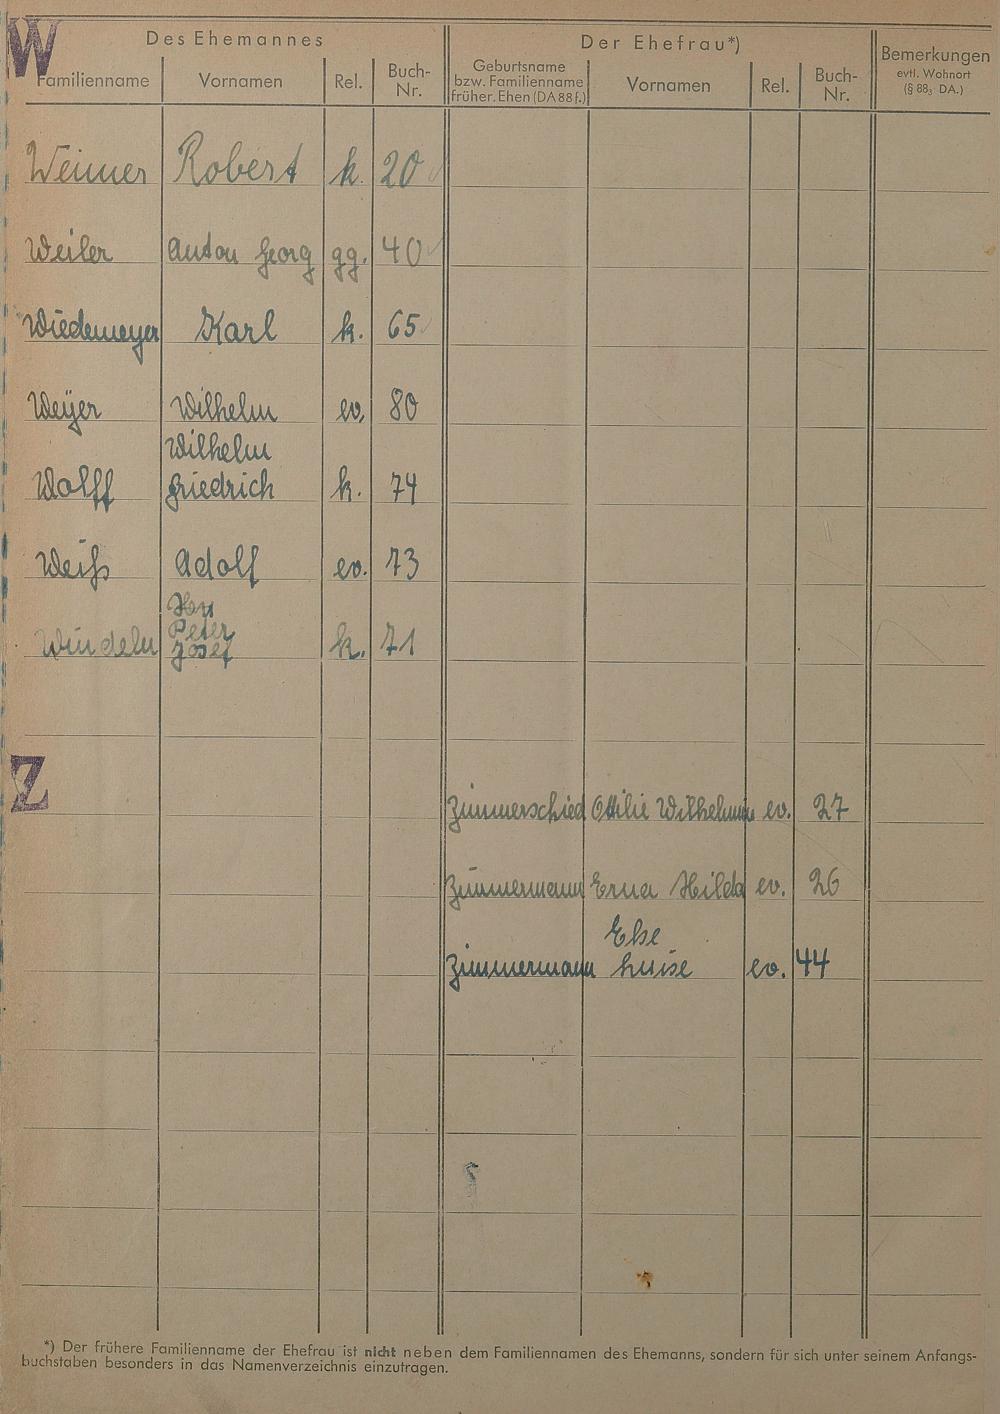 W
Des Ehemannes
Der Ehefrau*)
Bemerkungen
evtl. Wohnort
(§ 88, DA.)
Familienname
Vornamen
Rel.
Buch-
Nr.
Geburtsname
bzw. Familienname
früher. Ehen (DA 88 f.)
Vornamen
Rel.
Buch-
Nr.
Weimer Robert k. 20
Weiler Anton Georg gg. 40
Wiedemeyer Karl k. 65
Weyer Wilhelm ev. 80
Wilhelm
Wolff Friedrich k. 74
Weiß Adolf ev. 73
Peter
Windeln Josef k. 71
Z
Zimmerschied Ottilie ev. 27
Zimmermann Erna Hilda ev. 26
Else
Zimmermann Luise ev. 44
*) Der frühere Familienname der Ehefrau ist nicht neben dem Familiennamen des Ehemanns, sondern für sich unter seinem Anfangs-
buchstaben besonders in das Namenverzeichnis einzutragen.